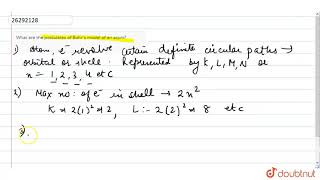 26292128
What are the postulates of Bohr's model of an atom?
1) Atom, e⁻ revolve certain definite circular paths →
orbital or shell. Represented by K, L, M, N or
n = 1, 2, 3, 4 etc
2) Max no: of e⁻ in shell → 2n²
K = 2(1)² = 2, L :- 2(2)² = 8 etc
3).
doubtnut